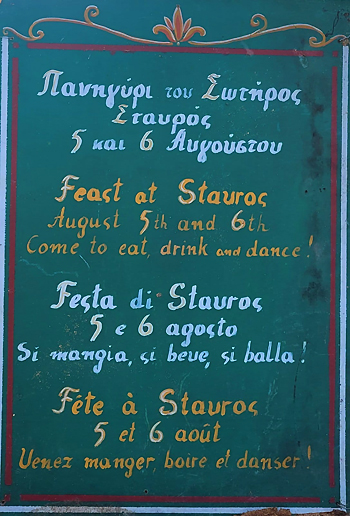 Πανηγύρι του Σωτήρος
Σταυρός
5 και 6 Αυγούστου
Feast at Stavros
August 5th and 6th
Come to eat, drink and dance!
Festa di Stavros
5 e 6 agosto
Si mangia, si beve, si balla!
Féte à Stavros
5 et 6 août
Venez manger, boire et danser!